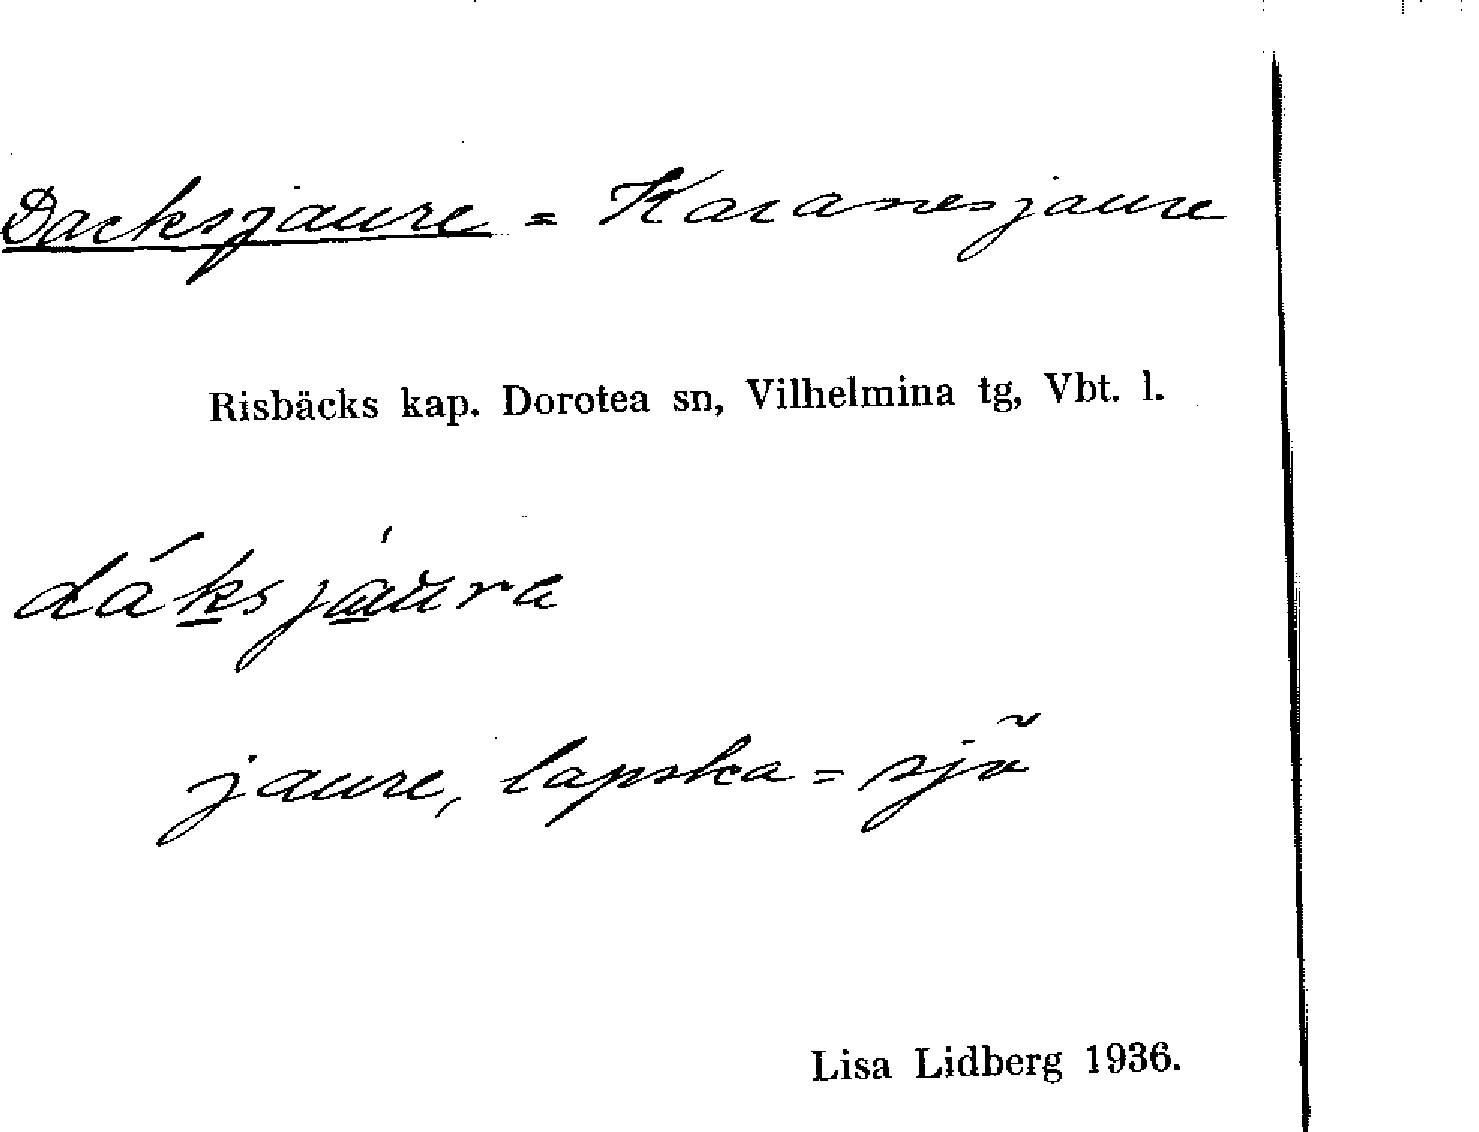 Dacksjaure = Karanesjaure
Risbäcks kap. Dorotea sn, Vilhelmina tg, Vbt. l.
dáksjáu̇ra
jaure, lapska = sjö
Lisa Lidberg 1936.